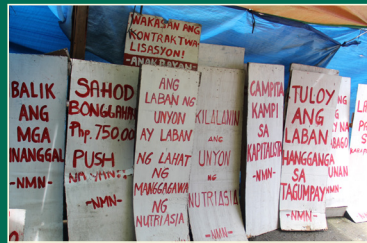 WAKASAN ANG
KONTRAKTWA
LISASYON!
-ANAKBAYAN-
BALIK
ANG
MGA
NANGGAL
-NMN-
SAHOD
BONGGAHAN
Php. 750.00
PUSH
NA 'YAN
-NMN-
ANG
LABAN NG
UNYON
AY LABAN
NG LAHAT
NG
MANGGAGAWA
NG
NUTRIASIA
KILALANIN
ANG
UNYON
NG
NUTRIASIA
-NMN-
CAMPITA
KAMPI
SA
KAPITALISTA
-NMN-
TULOY
ANG
LABAN
HANGGANG
SA
TAGUMPAY
-NMN-